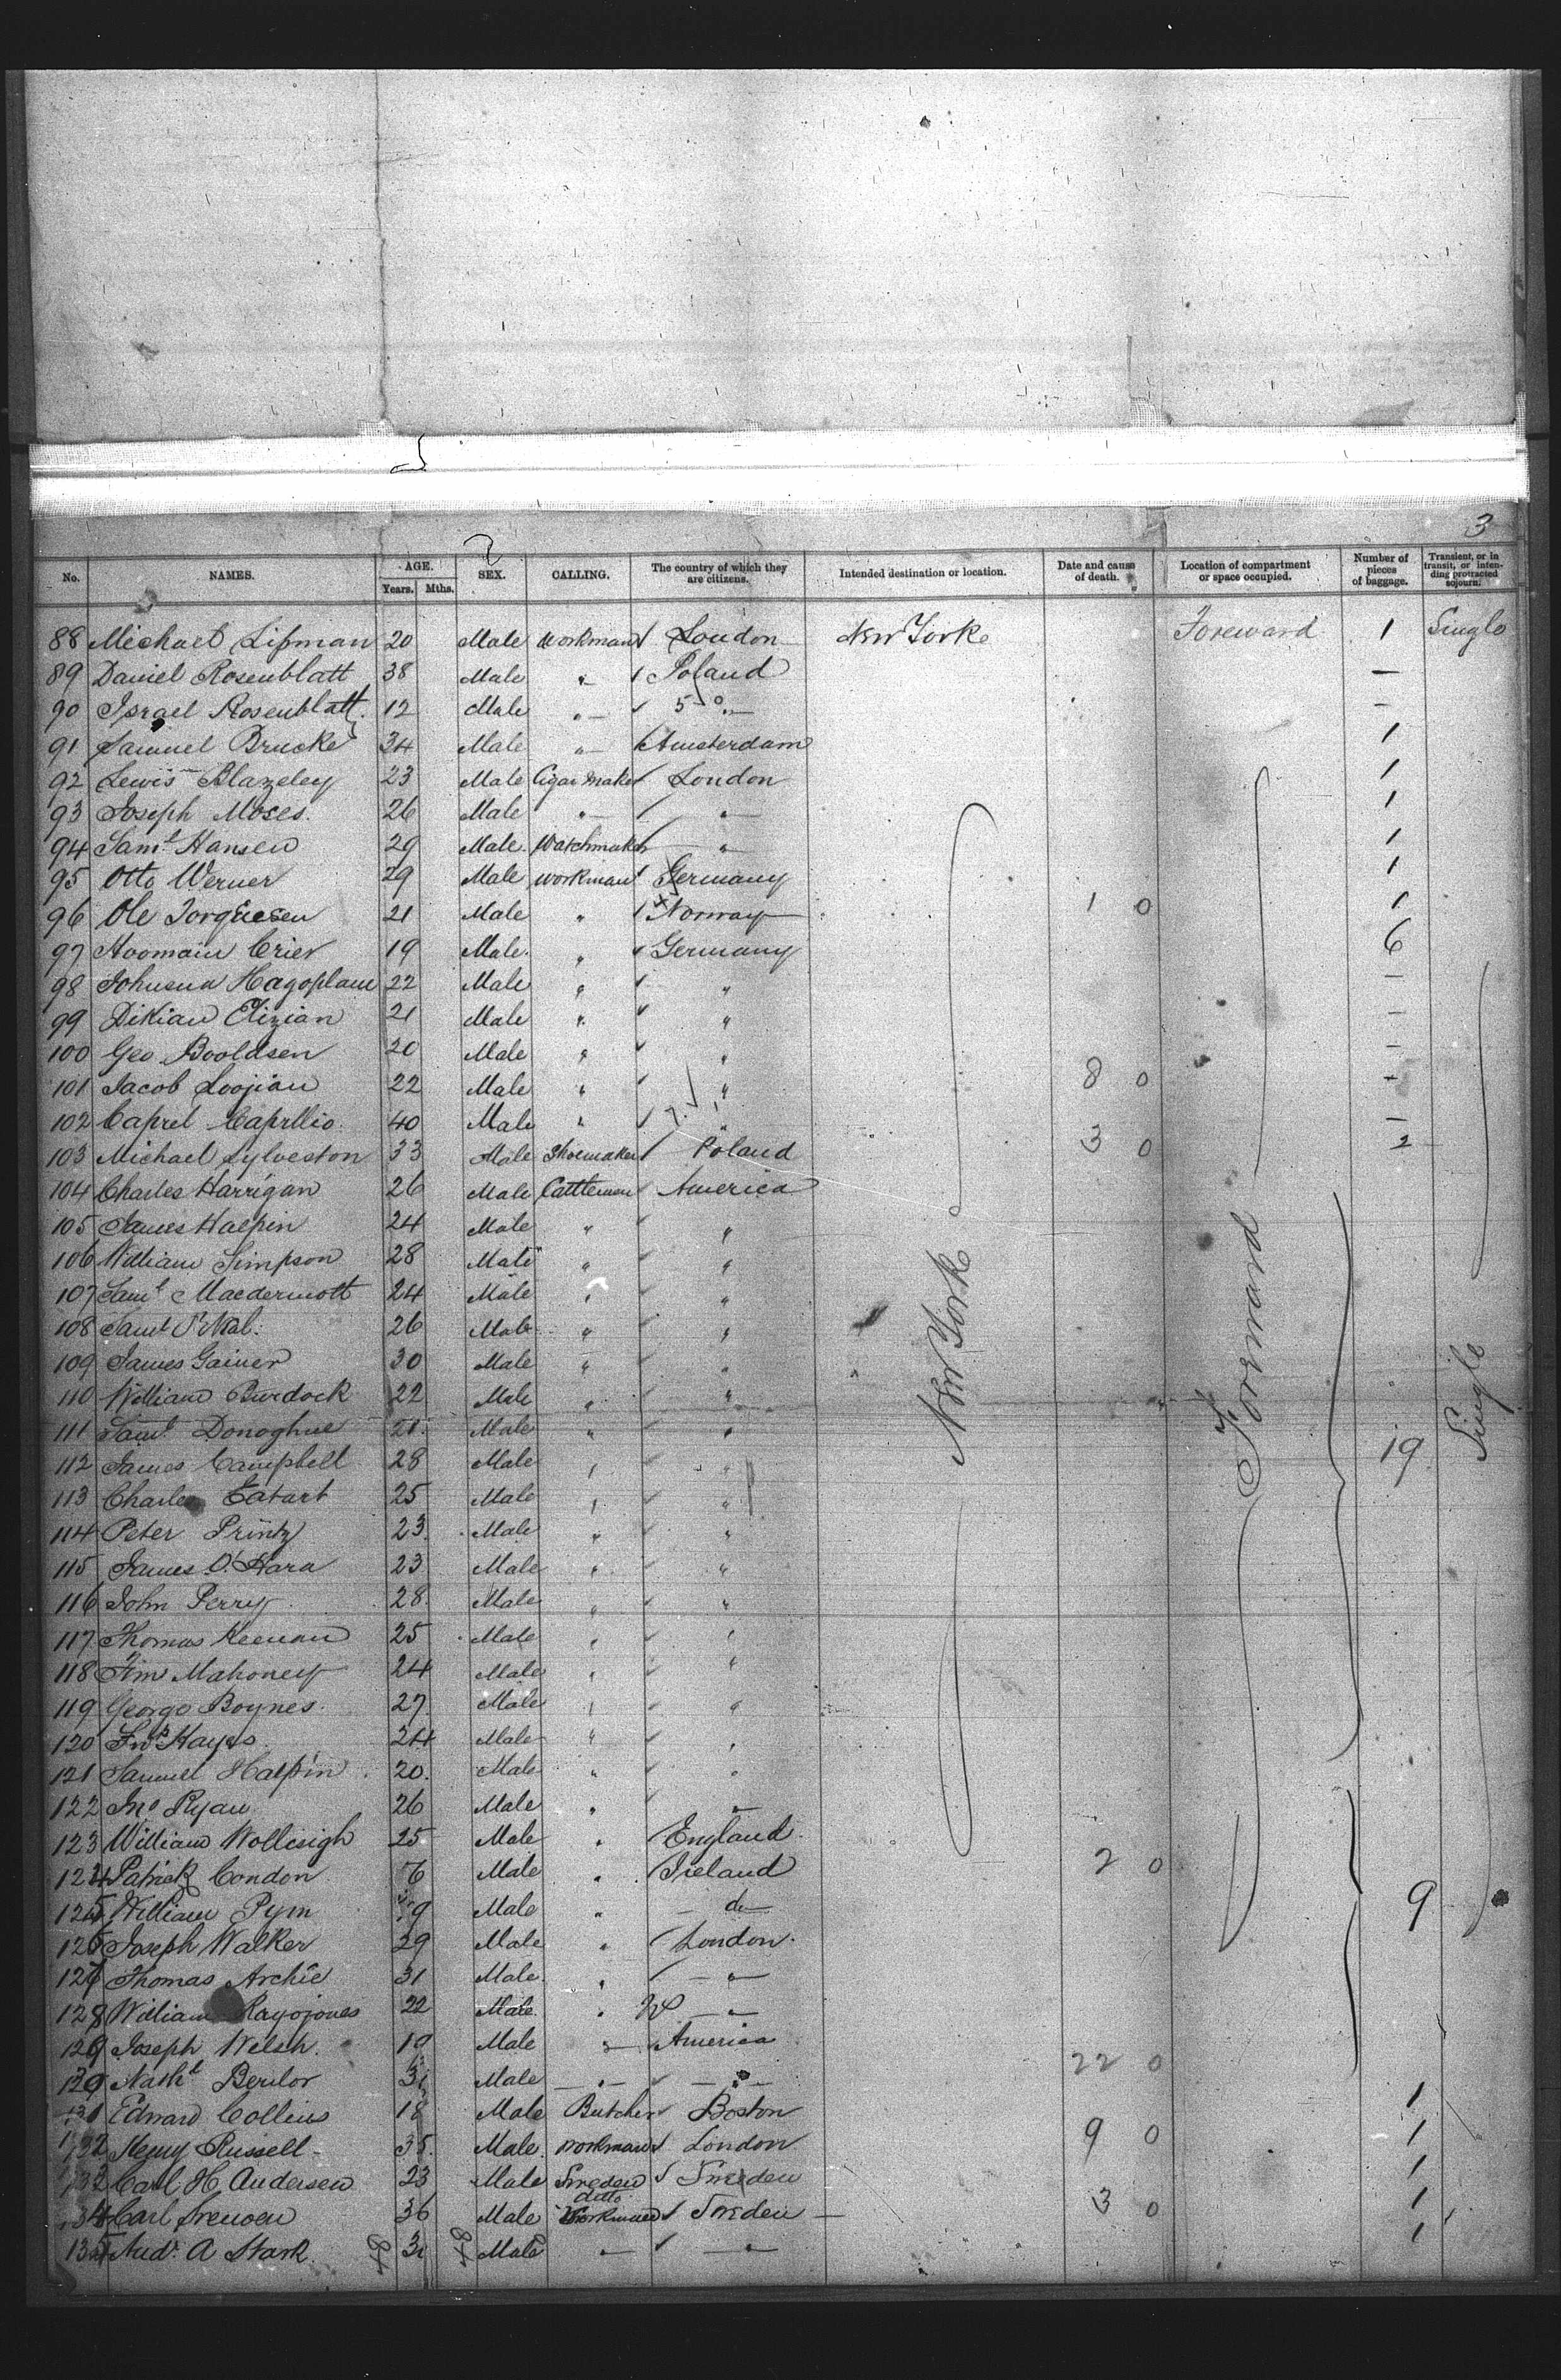 3
No. NAMES. AGE. Years. Mths. SEX. CALLING. The country of which they are citizens. Intended destination or location. Date and cause of death. Location of compartment or space occupied. Number of pieces of baggage. Transient, or in transit, or intending protracted sojourn.
88 Michael Lipman 20 Male Workman London New York Foreward 1 Single
89 Daniel Rosenblatt 38 Male " Poland —
90 Israel Rosenblatt 12 Male " —
91 Samuel Brucke 34 Male " Amsterdam 1
92 Lewis Blazeley 23 Male Cigar maker London 1
93 Joseph Moses. 26 Male " " 1
94 Saml Hansen 29 Male Watchmaker " 1
95 Otto Werner 29 Male workman Germany 1
96 Ole 21 Male " Norway 1 0 1
97 Crier 19 Male " Germany 6
98 Hagoplam 22 Male " " —
99 Dikian 21 Male " " —
100 Geo Booldsen 20 Male " " —
101 Jacob Loojian 22 Male " " 8 0 —
102 Caprel 40 Male " " —
103 Michael Sylveston 33 Male Shoemaker Poland 3 0 2
104 Charles Harrigan 26 Male Cattlemen America
105 James Halpin 24 Male " "
106 William Simpson 28 Male " "
107 Saml Macdermott 24 Male " "
108 26 Male " "
109 James Gainer 30 Male " "
110 William Burdock 22 Male " "
111 Saml Donoghue 21 Male " "
112 James Campbell 28 Male " "
113 Charles Eatart 25 Male " "
114 Peter Printz 23 Male " "
115 James O'Hara 23 Male " "
116 John Perry 28 Male " "
117 Thomas Keenan 25 Male " "
118 Tim Mahoney 24 Male " "
119 George Boynes 27 Male " "
120 Hayes 24 Male " "
121 Samuel Halpin 20 Male " "
122 Jno Ryan 26 Male " "
New York Forward 19 Single
123 William Wolliesigh 25 Male " England
124 Patrick Condon Male " Ireland 2 0
125 William Pym Male " do 9
126 Joseph Walker 29 Male " London
127 Thomas Archie 31 Male " "
128 William 22 Male " "
129 Joseph Welsh 19 Male " America
130 Male " " 22 0
131 Edward Collins 18 Male Butcher Boston 1
132 Henry Russell 35 Male workman London 9 0 1
Carl H. Andersen 23 Male Sweden Sweden 1
34 Carl 36 Male ditto Workman Sweden 3 0 1
135 And. A Stark 31 Male " " 1
48 48